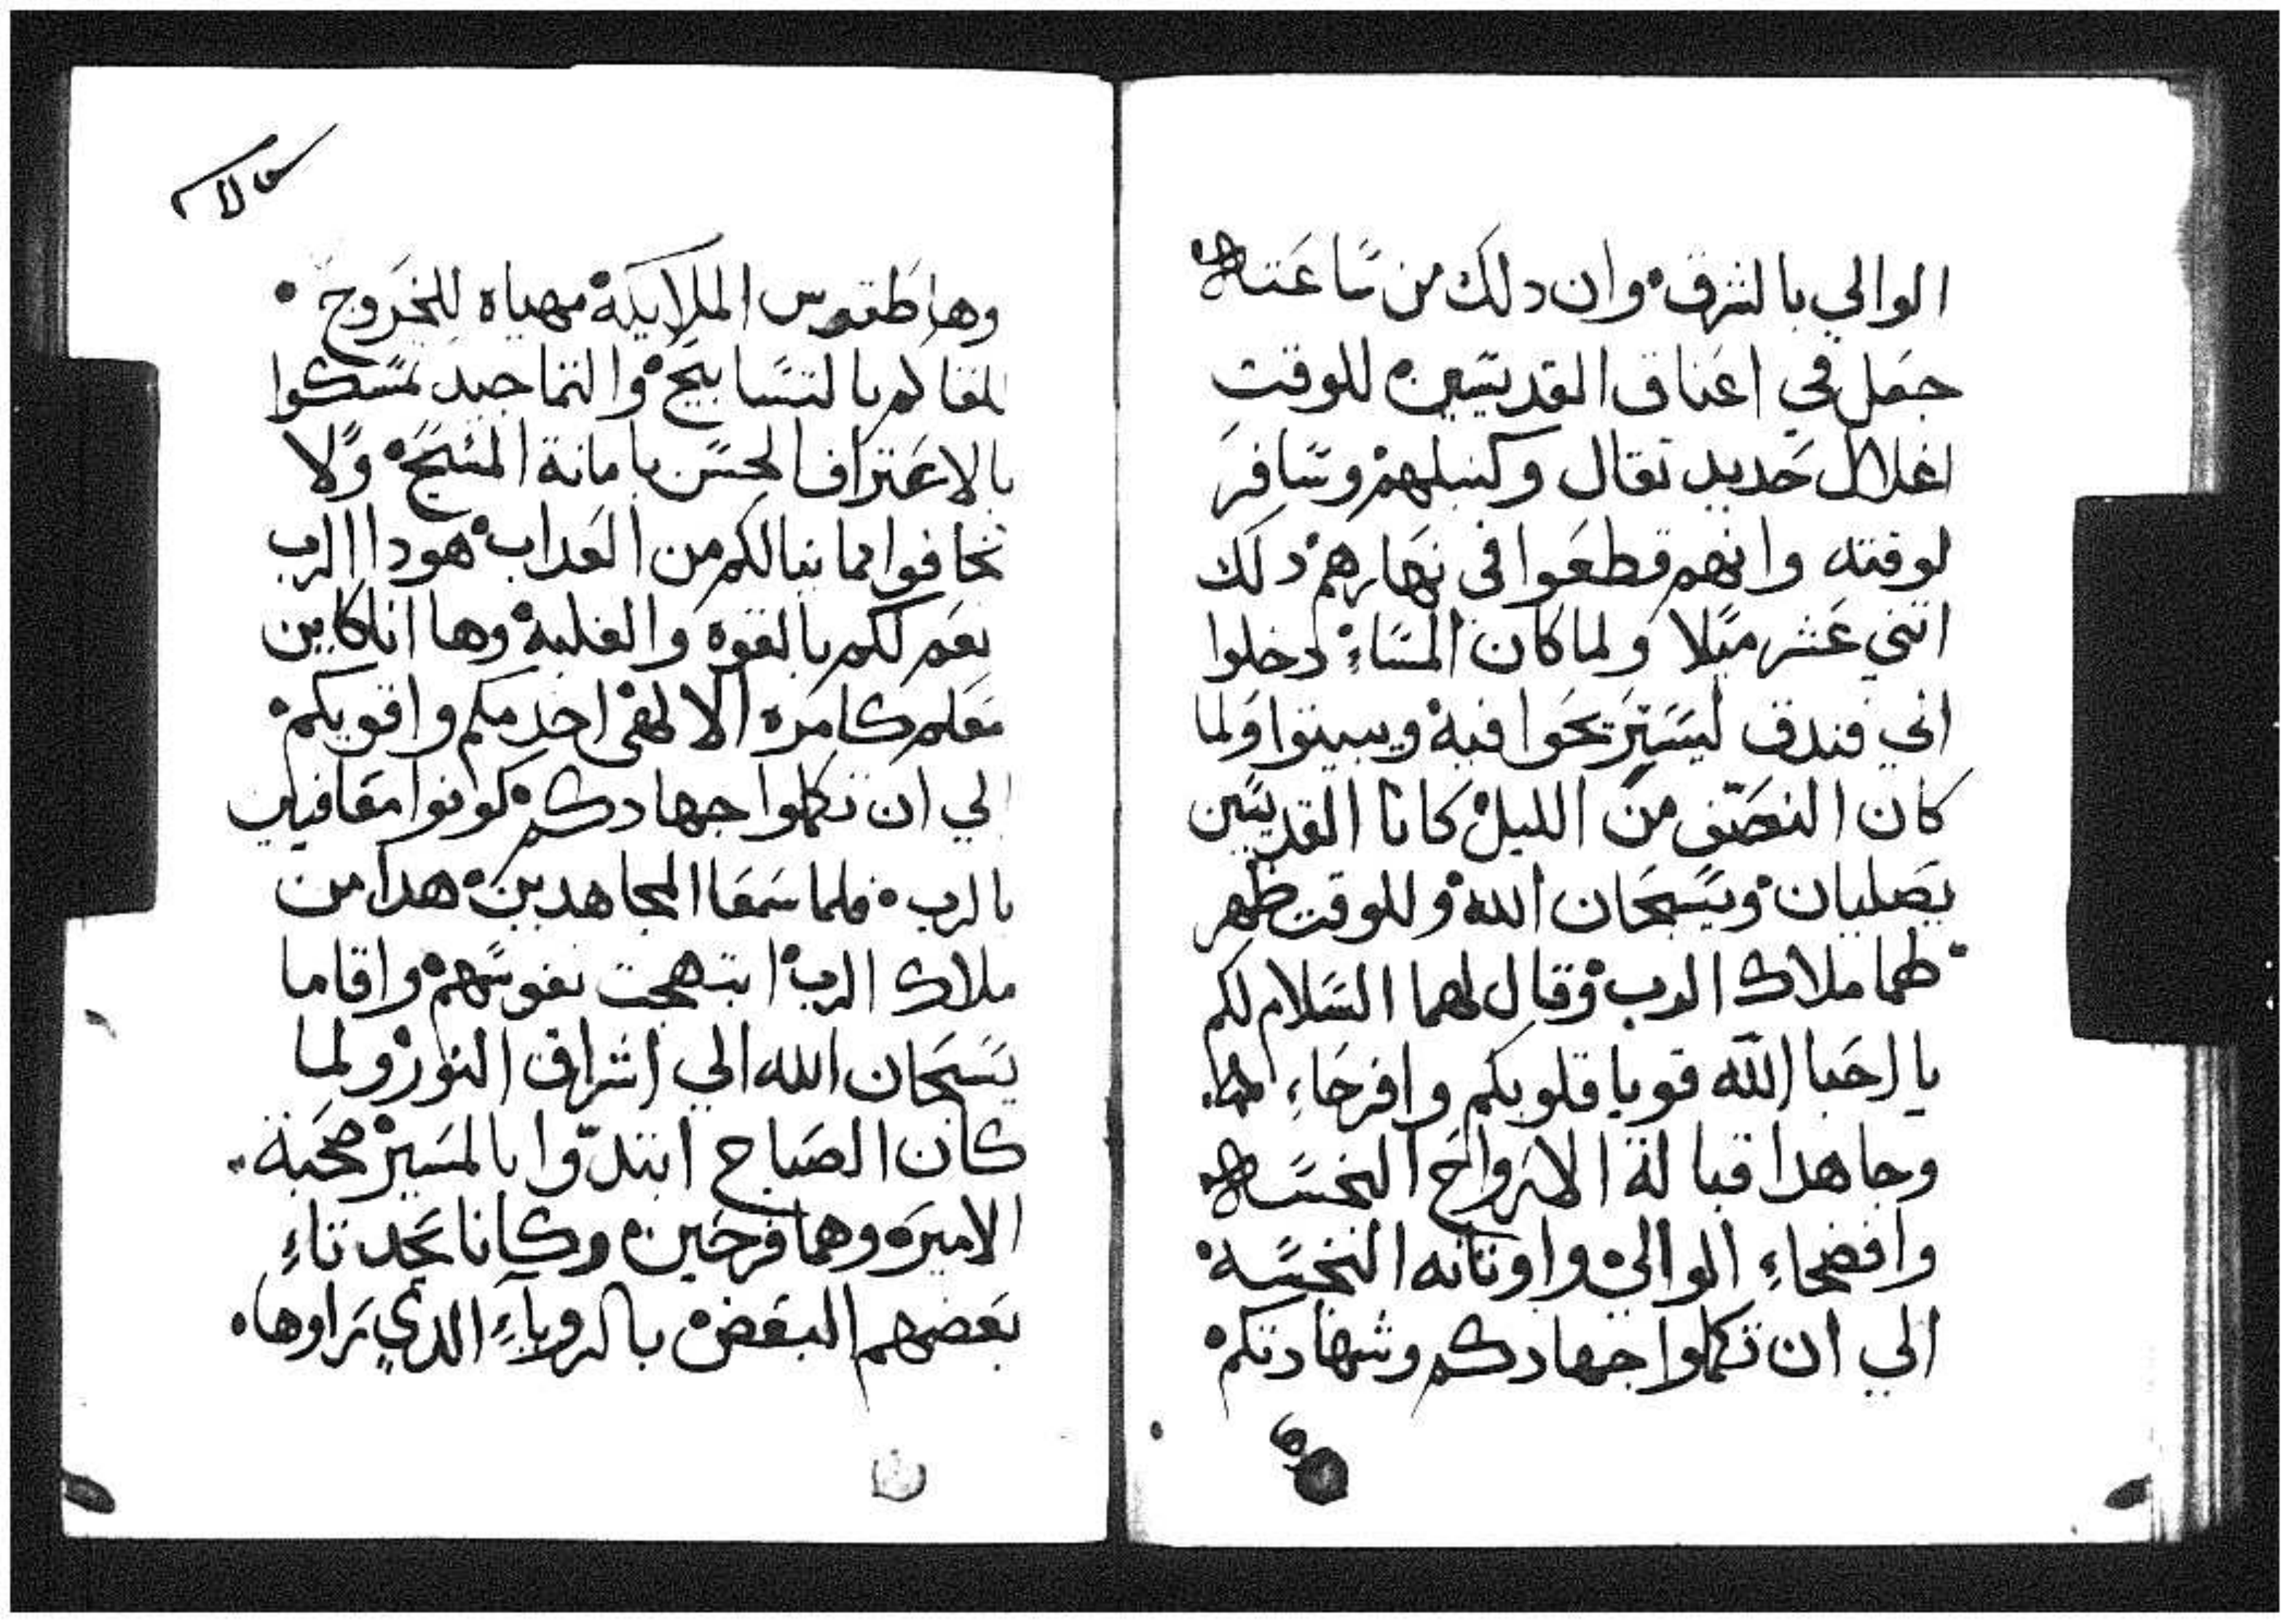 الوالي بالشرق وان دلك من ساعته
جعل في اعناق القديسين للوقت
اغلال حديد تقال وكبلهم وسافر
لوقته وانهم قطعوا في نهارهم دلك
اتني عشر ميلا ولما كان المساء دخلوا
الي فندق ليستريحوا فيه ويبيتوا ولما
كان النصف من الليل كانا القديسين
يصليان ويسبحان الله وللوقت ظهر
لهما ملاك الرب وقال لهما السلام لكم
يا احبا الله قويا قلوبكم وافرحاء
وجاهدا قبالة الارواح النجسه
وافضحاء الوالي واوتانه النجسه
الي ان تكملوا جهادكم وشهادتكم
وها طقوس الملايكة مهياه للخروج
للقاكم بالتسابيح والتماجيد تمسكوا
بالاعتراف الحسن بامانة المسيح ولا
تخافوا مما ينالكم من العداب هودا الرب
يعم لكم بالقوه والغلبة وها انا كاين
معكم كامره الالهي اخدمكم واقويكم
الي ان تكملوا جهادكم كونوا معافيين
بالرب فلما سمعا المجاهدين هدا من
ملاك الرب ابتهجت نفوسهم واقاما
يسبحان الله الي اشراق النور ولما
كان الصباح ابتدوا بالمسير صحبة
الاميره وهما فرحين وكانا يحدتاء
بعضهم البعض بالروياء الدي راوها